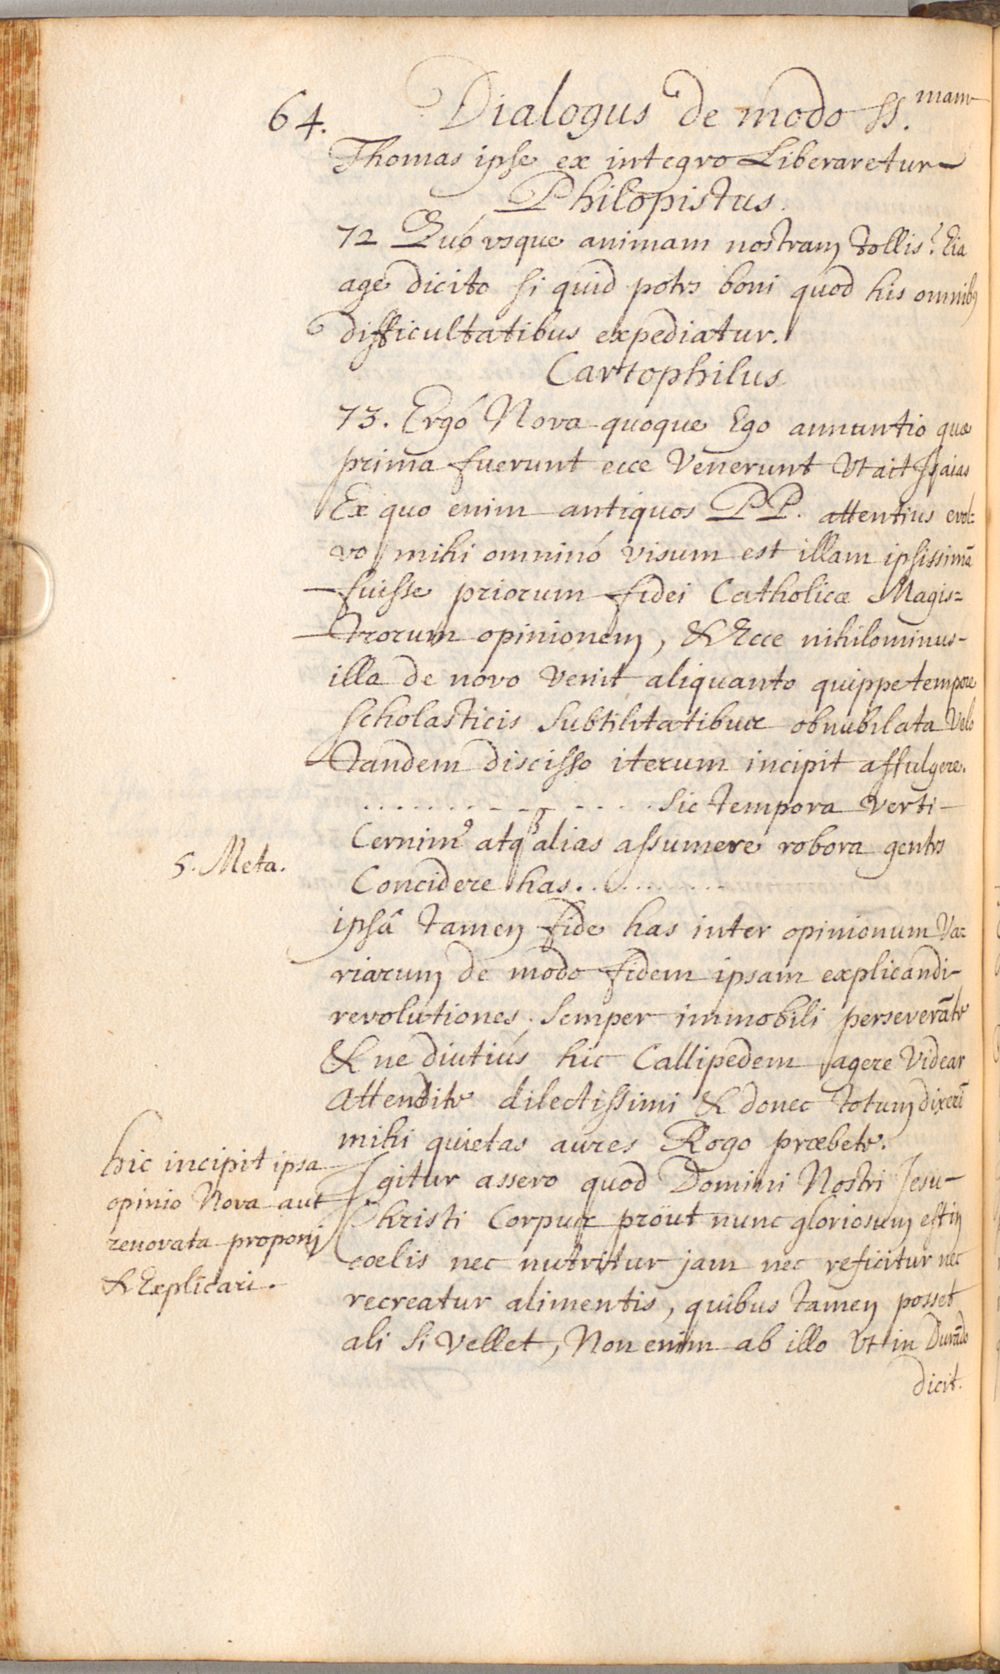 64. Dialogus de modo ss.mam
Thomas ipse ex integro Liberaretur
Philopistus.
72 Quó vsque animam nostram tollis? Eia
age dicito si quid potes boni quod his omnibus
difficultatibus expediatur.
Cartophilus
73. Ergó Nova quoque Ego annuntio quæ
prima fuerunt ecce Venerunt Vt ait Isaias
Ex quo enim antiquos PP. attentius evol=
vo mihi omninó visum est illam ipsissimā
fuisse priorum fidei Catholicæ Magis=
trorum opinionem, & Ecce nihilominus
illa de novo Venit aliquanto quippe tempore
scholasticis Subtilitatibus obnubilata Velo
tandem discisso iterum incipit affulgere.
. . . . . . . . . . . . . Sic tempora Verti
5. Meta.
Cernim9 atq3 alias assumere robora gentes
Concidere has. . . . . . . .
ipsâ tamen fide has inter opinionum Va=
riarum de modo fidem ipsam explicandi
revolutiones semper immobili perseverāte
& ne diutiús hic Callipedem agere Videar
Attendite dilectissimi & donec totum dixerī
mihi quietas aures Rogo præbete.
hic incipit ipsa
opinio Nova aut
renovata proponi
& Explicari.
Igitur assero quod Domini Nostri Jesu
Christi Corpus proüt nunc gloriosum est in
coelis nec nutritur jam nec reficitur nec
recreatur alimentis, quibus tamen posset
ali si Vellet, Non enim ab illo Vt in Durādo
dicit.